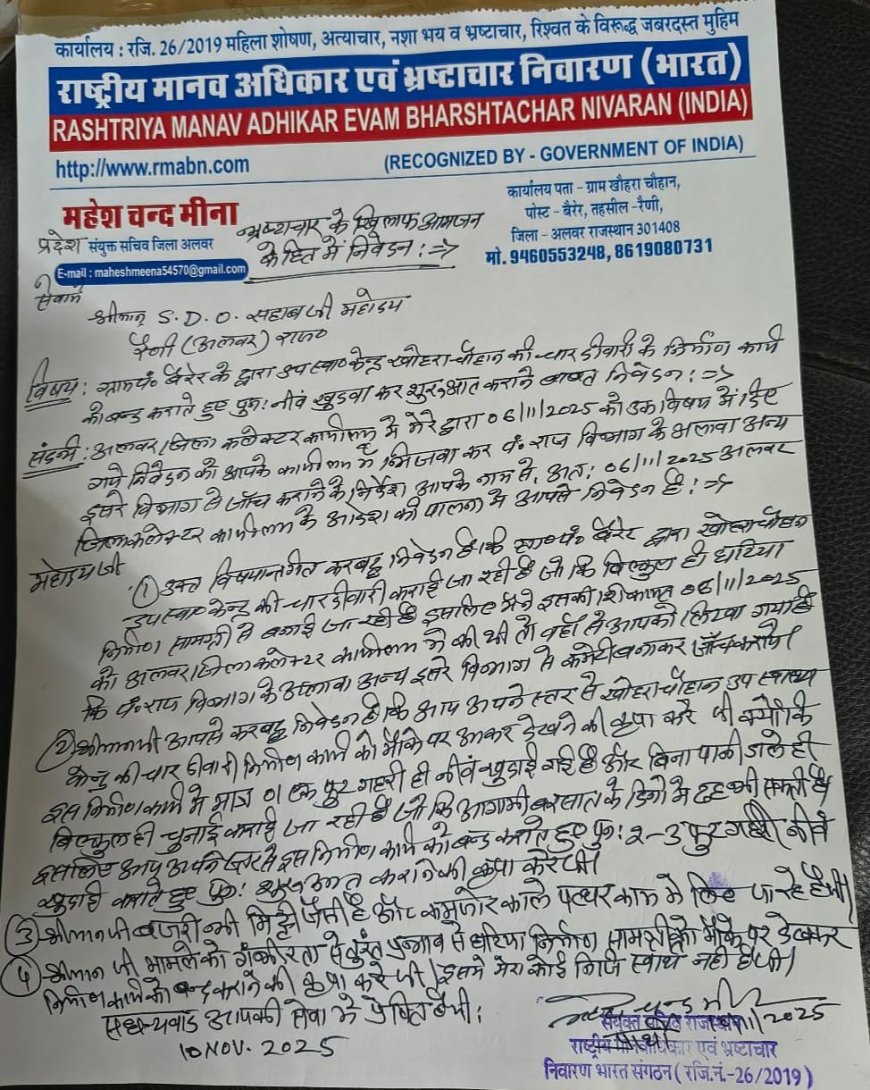 कार्यालय : रजि. 26/2019 महिला शोषण, अत्याचार, नशा भय व भ्रष्टाचार, रिश्वत के विरूद्ध जबरदस्त मुहिम
राष्ट्रीय मानव अधिकार एवं भ्रष्टाचार निवारण (भारत)
RASHTRIYA MANAV ADHIKAR EVAM BHARSHTACHAR NIVARAN (INDIA)
http://www.rmabn.com
(RECOGNIZED BY - GOVERNMENT OF INDIA)
महेश चन्द मीना
प्रदेश संयुक्त सचिव जिला अलवर
E-mail : maheshmeena54570@gmail.com
भ्रष्टाचार के खिलाफ आमजन
के हित में निवेदन :⇒
कार्यालय पता - ग्राम खौहरा चौहान,
पोस्ट - बैरेर, तहसील - रैणी,
जिला - अलवर राजस्थान 301408
मो. 9460553248, 8619080731
सेवामें
श्रीमान् S.D.O. सहाब जी महोदय
रैणी (अलवर) राज०
विषय : ग्राम पं० बैरेर के द्वारा उप स्वा० केन्द्र खोहरा चौहान की चार दीवारी के निर्माण कार्य
को बन्द कराते हुए पुनः नीवं खुदवा कर शुरूआत कराने बाबत निवेदन :⇒
संदर्भ : अलवर जिला कलेक्टर कार्यालय में मेरे द्वारा 06/11/2025 को उक्त विषय में दिए
गये निवेदन को आपके कार्यालय में भिजवा कर पं. राज विभाग के अलावा अन्य
दूसरे विभाग से जॉच कराने के निर्देश आपके नाम से, अतः 06/11/2025 अलवर
जिला कलेक्टर कार्यालय के आदेश की पालना में आपसे निवेदन है :⇒
महोदय जी
① उक्त विषयान्तर्गत करबद्ध निवेदन है कि ग्रा० पं० बैरेर द्वारा खोहरा चौहान
उप स्वा० केन्द्र की चार दीवारी कराई जा रही है जो कि बिल्कुल ही घटिया
निर्माण सामग्री से बनाई जा रही है इसलिए मैंने इसकी शिकायत 06/11/2025
को अलवर जिला कलेक्टर कार्यालय में की थी तो वहाँ से आपको लिखा गया है
कि पं. राज विभाग के अलावा अन्य दूसरे विभाग से कमेटी बनाकर जॉच करायें।
② श्रीमान जी आपसे करबद्ध निवेदन है कि आप अपने स्तर से खोहरा चौहान उप स्वास्थ्य
केन्द्र की चार दीवारी निर्माण कार्य को मौके पर आकर देखने की कृपा करें जी क्योंकि
इस निर्माण कार्य में मात्र 01 एक फुट गहरी ही नीवं खुदाई गई है और बिना पानी डाले ही
बिल्कुल ही चुनाई कराई जा रही है जो कि आगामी बरसात के दिनों में ढह भी सकती है।
इसलिए आप अपने स्तर से इस निर्माण कार्य को बन्द कराते हुए पुनः 2-3 फुट गहरी नीवं
खुदाई कराते हुए पुनः शुरूआत कराने की कृपा करें जी।
③ श्रीमान जी बजरी भी मिट्टी जैसी है और कमजोर काले पत्थर काम में लिए जा रहे है जी।
④ श्रीमान जी मामले को गंभीरता से तुरंत प्रभाव से घटिया निर्माण सामग्री को मौके पर देखकर
निर्माण कार्य को बन्द कराने की कृपा करें जी। इसमें मेरा कोई निजि स्वार्थ नहीं है जी।
सधन्यवाद आपकी सेवा में प्रेषित है जी :
10 NOV. 2025
संयुक्त सचिव राजस्थान
राष्ट्रीय मानवाधिकार एवं भ्रष्टाचार
निवारण भारत संगठन (रजि.नं.-26/2019)